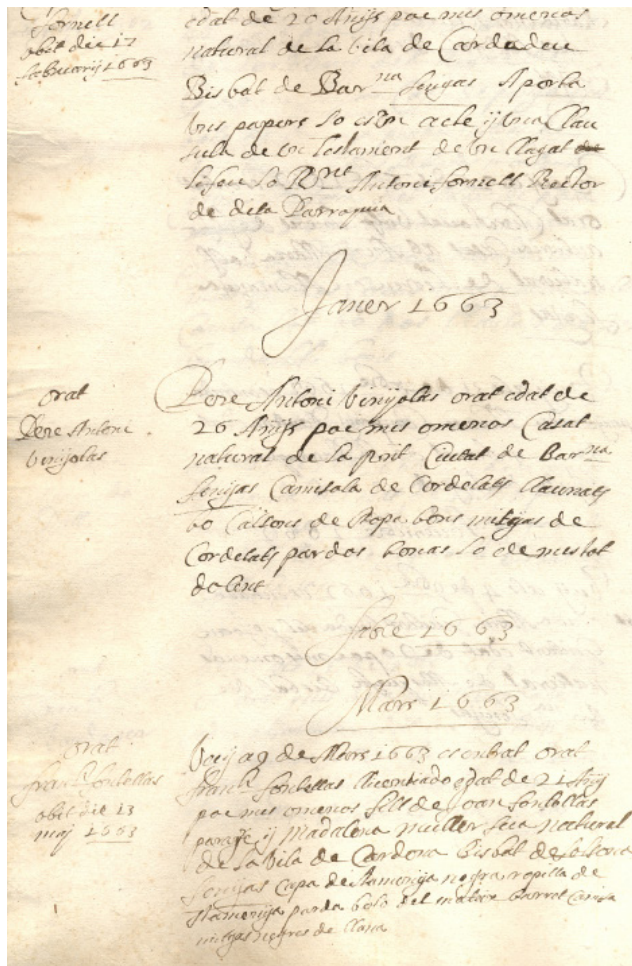 fornell
obit die 17
febuarij 1663
edat de 20 Anijs poc mes omenos
natural de la vila de Cardadeu
Bisbat de Barna senyas Aporta
uns papers so es un acte ij una Clau
sula de un testament de un llagat
li feu lo Rnt Antoni fornell Rector
de dita Parroquia
Janer 1663
orat
Pere Antoni
vinijolas
Pere Antoni vinijolas orat edat de
26 Anijs poc mes omenos Casat
natural de la pnt Ciutat de Barna
senijas Camisola de Cordelats llaunats
bo Calsons de Ropa bons mitijas de
Cordelats pardos bonas lo demes tot
dolent
Fabre 1663
Mars 1663
orat
franch fontellas
obit die 13
maj 1663
Vuij a 9 de Mars 1663 es entrat orat
franch fontellas llicentiado edat de 21 Anijs
poc mes omenos fill de Joan fontellas
paraijre ij Madalena muller sua natural
de la vila de Cardona Bisbat de Solsona
senijas Capa de stamenija negra ropilla de
stamenija parda bo lo del matex barret Camisa
mitijas negres de llana